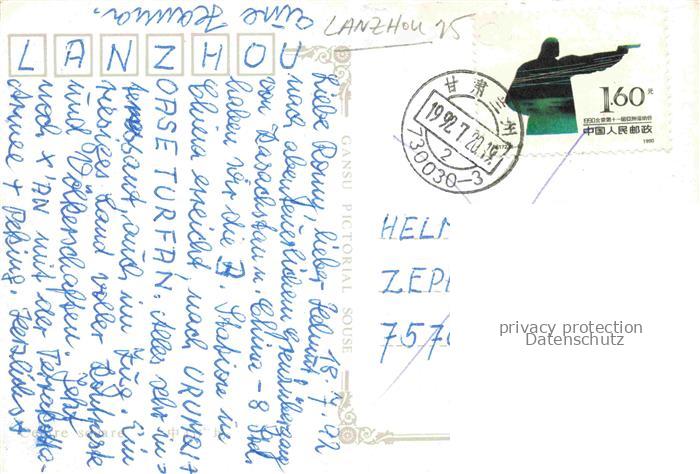 LANZHOU 25
LANZHOU
18. 7. 92
Liebe Romy, lieber Helmut,
nach abenteuerlichem Grenzübergang
von Kasachstan n. China – 8 Std.
haben wir die 7. Station in
China erreicht nach URUMQI +
OASE TURFAN. Alles sehr in-
teressant, auch im Zug. Ein
riesiges Land voller Kontraste
und Völkerschaften. Jetzt
noch X'AN mit der Terrakotta-
Armee + Peking. Herzlichst
eine
Hanna.
GANSU PICTORIAL SOUSE
Centre square
中
甘肃
1992.7.20.19
2
730030-3
1.60元
1990北京第十一届亚洲运动会
中国人民邮政
1990
HELM
ZEP
7570
privacy protection
Datenschutz